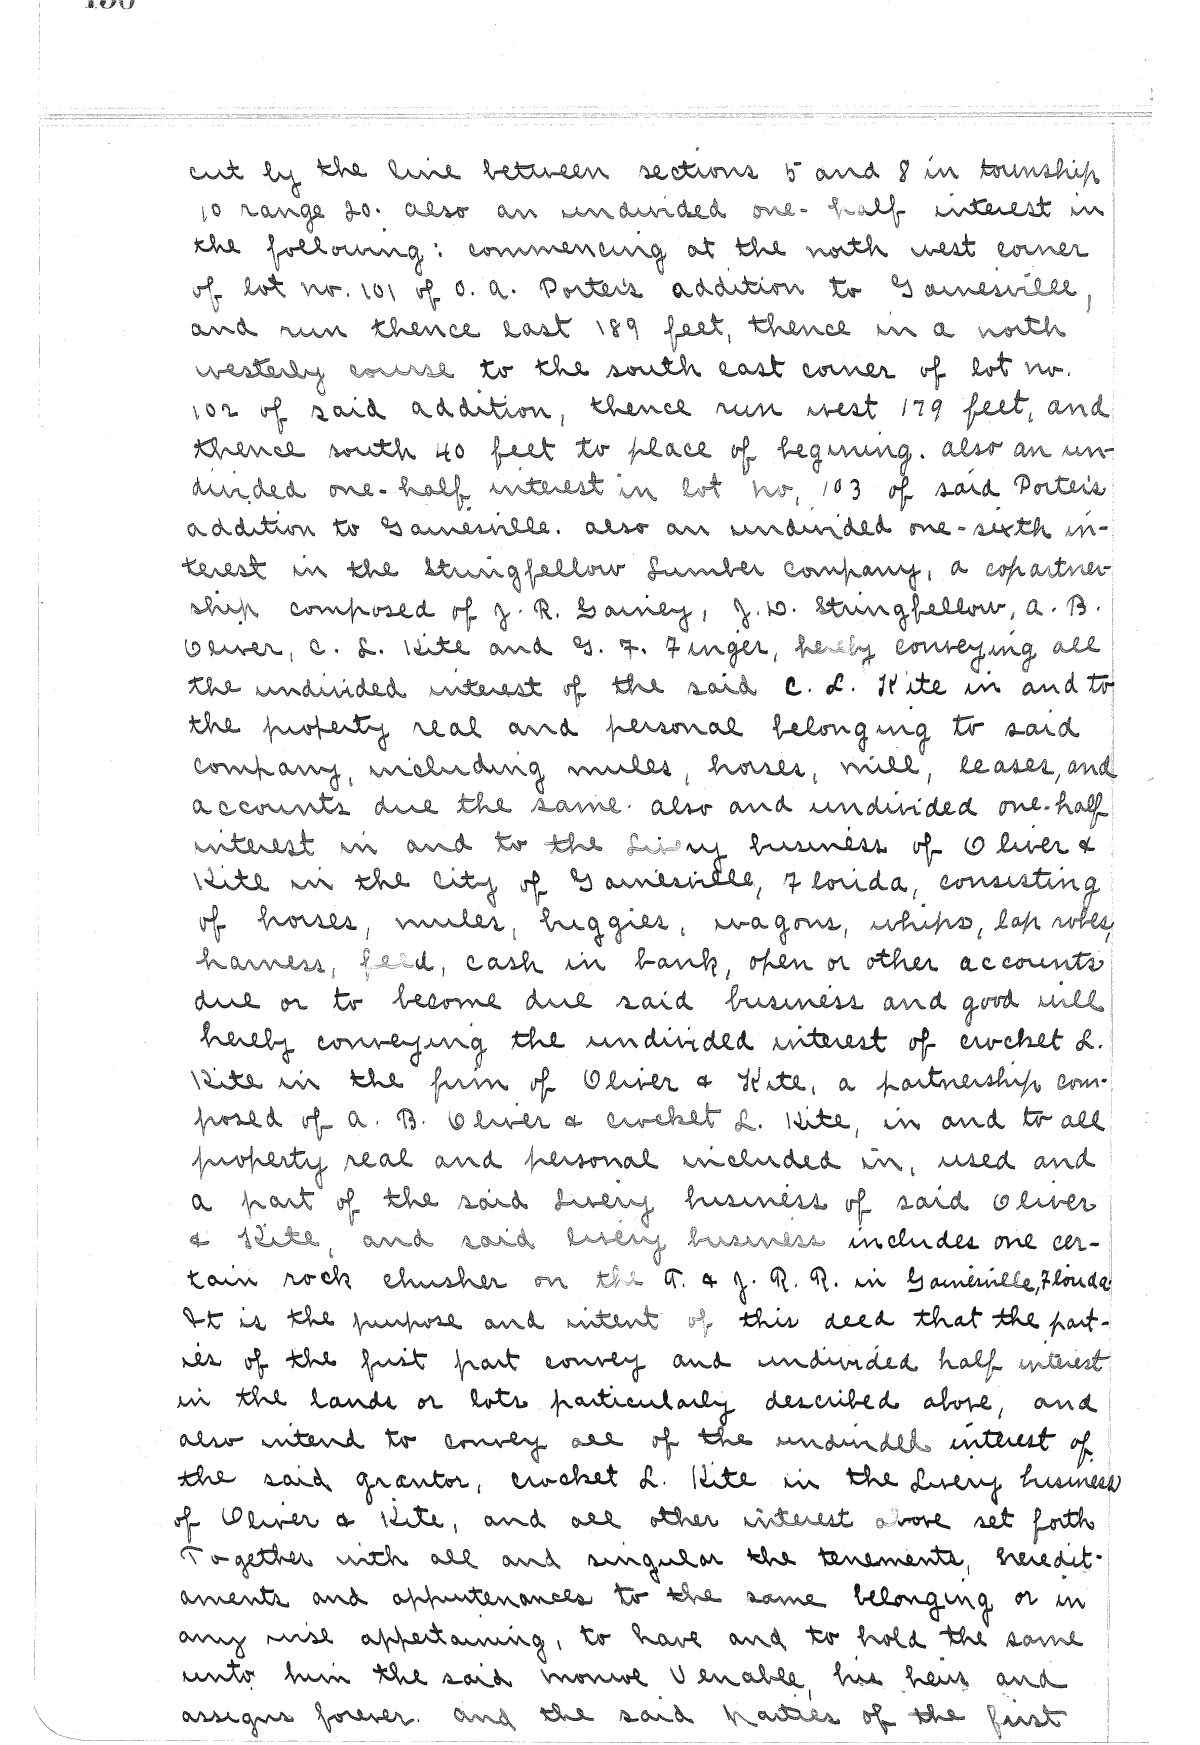 cut by the line between sections 5 and 8 in township
10 range 20. also an undivided one-half interest in
the following: commencing at the north west corner
of lot no. 101 of O. A. Porter's addition to Gainesville,
and run thence east 189 feet, thence in a north
westerly course to the south east corner of lot no.
102 of said addition, thence run west 179 feet, and
thence south 40 feet to place of begining. also an un-
divided one-half interest in lot no, 103 of said Porter's
addition to Gainesville. also an undivided one-sixth in-
terest in the Stringfellow Lumber company, a copartner
ship composed of J. R. Gainey, J. W. Stringfellow, A. B.
Oliver, C. L. Kite and G. F. Finger, hereby conveying all
the undivided interest of the said C. L. Kite in and to
the property real and personal belonging to said
company, including mules, horses, mill, leases, and
accounts due the same. also and undivided one-half
interest in and to the Livery business of Oliver &
Kite in the City of Gainesville, Florida, consisting
of horses, mules, buggies, wagons, whips, lap robes,
harness, feed, cash in bank, open or other accounts
due or to become due said business and good will
hereby conveying the undivided interest of Crocket L.
Kite in the firm of Oliver & Kite, a partnership com-
posed of A. B. Oliver & Crocket L. Kite, in and to all
property real and personal included in, used and
a part of the said Livery business of said Oliver
& Kite, and said livery business includes one cer-
tain rock chusher on the T. & J. R. R. in Gainesville, Florida.
It is the purpose and intent of this deed that the part-
ies of the first part convey and undivided half interest
in the lands or lots particularly described above, and
also intend to convey all of the undivided interest of
the said grantor, Crocket L. Kite in the Livery business
of Oliver & Kite, and all other interest above set forth
Together with all and singular the tenements, heredit-
aments and appurtenances to the same belonging or in
any wise appertaining, to have and to hold the same
unto him the said Monroe Venable, his heirs and
assigns forever. And the said parties of the first